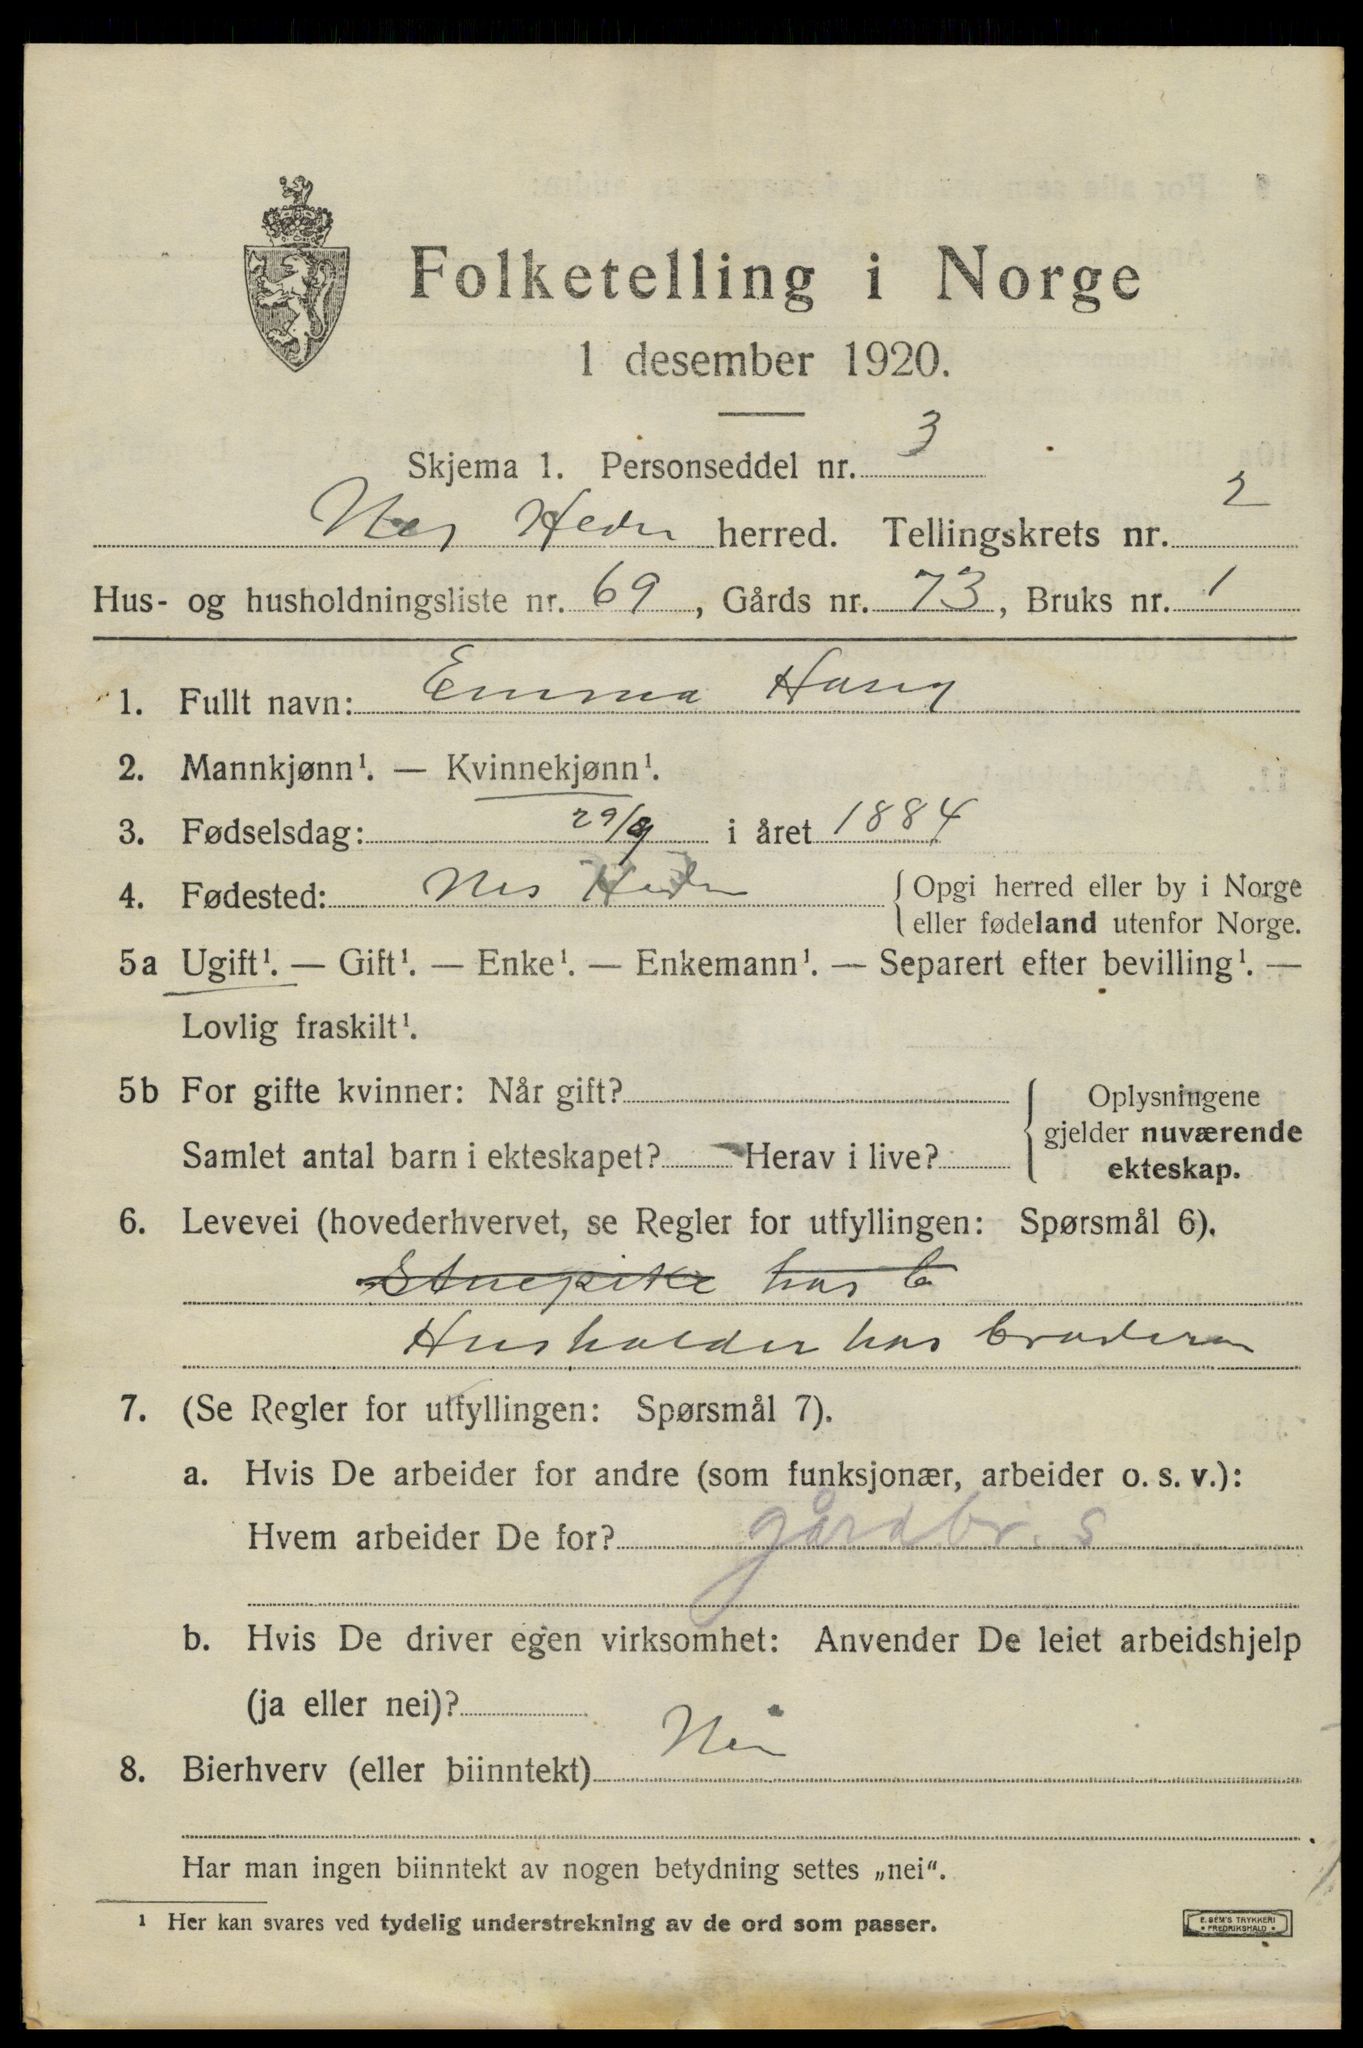 Folketelling i Norge
1 desember 1920.
Skjema 1. Personseddel nr. 3
Nes Hedm herred. Tellingskrets nr. 2
Hus- og husholdningsliste nr. 69, Gårds nr. 73, Bruks nr. 1
1. Fullt navn: Emma Haug
2. Mannkjønn¹. — Kvinnekjønn¹.
3. Fødselsdag: 29/9 i året 1884
4. Fødested: Nes Hedm { Opgi herred eller by i Norge
eller fødeland utenfor Norge.
5a Ugift¹. — Gift¹. — Enke¹. — Enkemann¹. — Separert efter bevilling¹. —
Lovlig fraskilt¹.
5b For gifte kvinner: Når gift? { Oplysningene
gjelder nuværende
Samlet antal barn i ekteskapet? Herav i live?
ekteskap.
6. Levevei (hovederhvervet, se Regler for utfyllingen: Spørsmål 6).
Stuepike hos b
Husholder hos broderen
7. (Se Regler for utfyllingen: Spørsmål 7).
a. Hvis De arbeider for andre (som funksjonær, arbeider o. s. v.):
Hvem arbeider De for? gårdbr. s
b. Hvis De driver egen virksomhet: Anvender De leiet arbeidshjelp
(ja eller nei)?
8. Bierhverv (eller biinntekt) Nei
Har man ingen biinntekt av nogen betydning settes „nei".
¹ Her kan svares ved tydelig understrekning av de ord som passer.
E. SEM'S TRYKKERI
• FREDRIKSHALD •